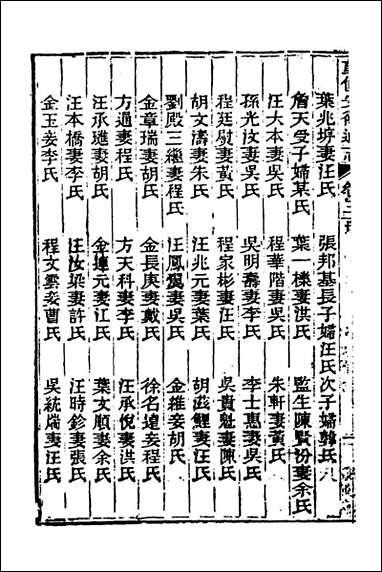 葉兆㙐妻汪氏 張邦基長子婦汪氏次子婦韓氏
詹天受子婦某氏 葉一櫟妻洪氏 監生陳賢份妻余氏
汪大本妻吳氏 程華階妻吳氏 朱軒妻黃氏
孫光汝妻吳氏 吳明壽妻李氏 李士惠妻吳氏
程廷熨妻黃氏 程家彬妻汪氏 吳貴魁妻陳氏
胡文濤妻朱氏 汪兆元妻葉氏 胡滋鯉妻汪氏
劉殿三繼妻程氏 汪鳳翼妻吳氏 金維妾胡氏
金章瑞妻胡氏 金長庚妻戴氏 徐名煌妾程氏
方過妻程氏 方天科妻李氏 汪承悅妻洪氏
汪承進妻胡氏 金連元妻江氏 葉文順妻余氏
汪本橋妻李氏 汪汝梁妻許氏 汪時鉁妻張氏
金玉妾李氏 程文妾曹氏 吳統妻汪氏